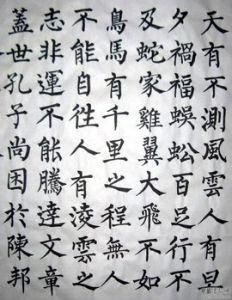 天有不測風雲人有旦
夕禍福蜈蚣百足行不
及蛇家雞翼大飛不如
鳥馬有千里之程無人
不能自往人有淩雲之
志非運不能騰達文章
蓋世孔子尚困於陳邦